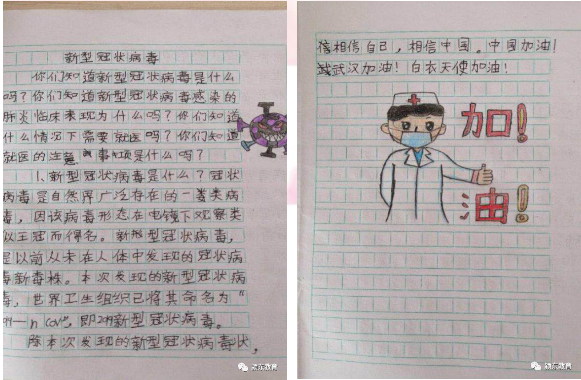 新型冠状病毒
你们知道新型冠状病毒是什么
吗？你们知道新型冠状病毒感染的
肺炎临床表现为什么吗？你们知道
什么情况下需要就医吗？你们知道
就医的注意事项是什么吗？
1、新型冠状病毒是什么？冠状
病毒是自然界广泛存在的一类病
毒，因该病毒形态在电镜下观察类
似王冠而得名。新型冠状病毒，
是以前从未在人体中发现的冠状病
毒新毒株。本次发现的新型冠状病
毒，世界卫生组织已将其命名为“
-n CoV”，即 新型冠状病毒。
除本次发现的新型冠状病毒状，
信相信自己，相信中国。中国加油！
武汉加油！白衣天使加油！
加！
油！